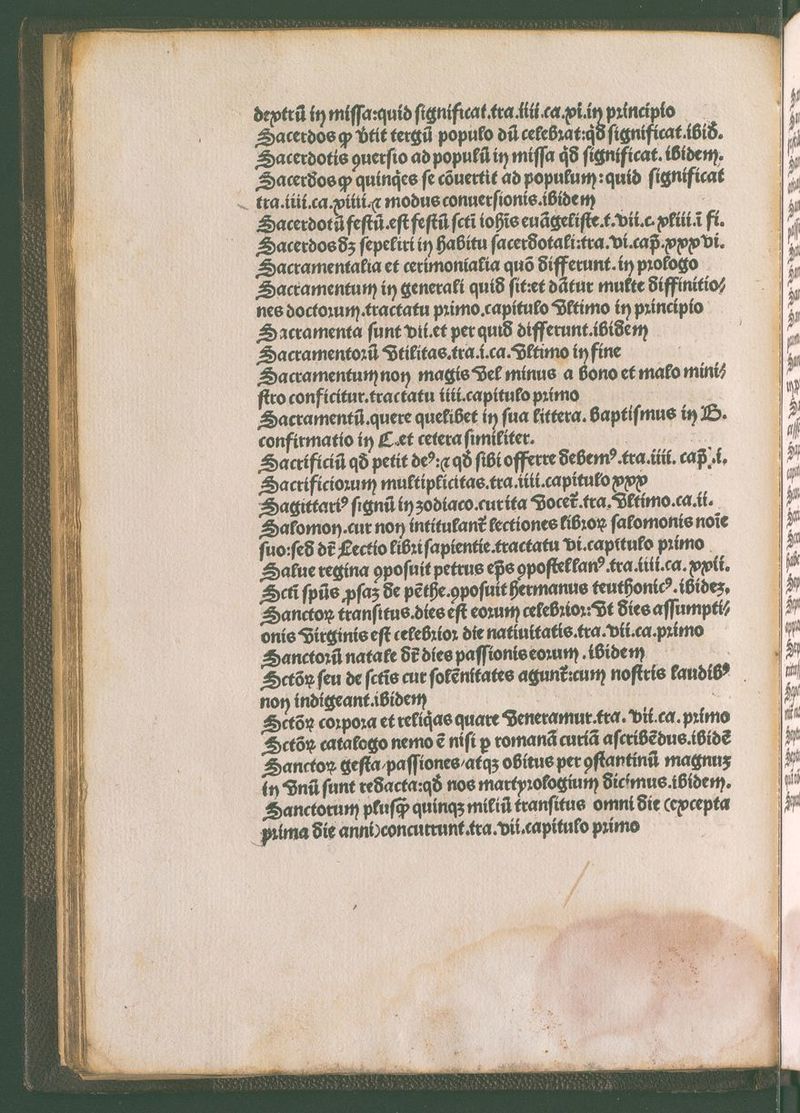 dextrū in miſſa:quid ſignificat.tra.iiii.ca.xi.in principio
Sacerdos ꝙ vtit tergū populo dū celebrat:qď ſignificat.ibid̄.
Sacerdotis ꝯuerſio ad populū in miſſa qď ſignificat. ibidem.
Sacerdos ꝙ quinq̇es ſe cōuertit ad populum: quid ſignificat
tra.iiii.ca.xiiii.⁊ modus conuerſionis.ibidem
Sacerdotū feſtū.eſt feſtū ſcti ioh̄is euāgeliſte.t.vii.c.xliii.ī fi.
Sacerdos dꝫ ſepeliri in habitu ſacerdotali:tra.vi.cap̄.xxxvi.
Sacramentalia et cerimonialia quō differunt. in prologo
Sacramentum in generali quid ſit:et dātur multe diffinitio⸗
nes doctorum.tractatu primo.capitulo vltimo in principio
Sacramenta ſunt vii.et per quid differunt.ibidem
Sacramentorū vtilitas.tra.i.ca.vltimo in fine
Sacramentum non magis vel minus a bono et malo mini⸗
ſtro conficitur.tractatu iiii.capitulo primo
Sacramentū.quere quelibet in ſua littera. baptiſmus in B.
confirmatio in C.et cetera ſimiliter.
Sacrificiū qď petit deꝰ:⁊ qď ſibi offerre debemꝰ.tra.iiii. cap̄.i.
Sacrificiorum multiplicitas.tra.iiii.capitulo xxx
Sagittariꝰ ſignū in zodiaco.cur ita vocet̄.tra.vltimo.ca.ii.
Salomon.cur non intitulant̄ lectiones libroꝝ ſalomonis noīe
ſuo:ſed dr̄ Lectio libri ſapientie.tractatu vi.capitulo primo
Salue regina ꝯpoſuit petrus ep̄s ꝯpoſtellanꝰ.tra.iiii.ca.xxii.
Scti ſpūs ꝓſaꝫ de pēthe.ꝯpoſuit hermanus teuthonicꝰ.ibidēꝫ.
Sanctoꝝ tranſitus.dies eſt eorum celebrior:vt dies aſſumpti⸗
onis virginis eſt celebrior die natiuitatis.tra.vii.ca.primo
Sanctorū natale dr̄ dies paſſionis eorum . ibidem
Sctōꝝ ſeu de ſctis cur ſolēnitates agunt̄:cum noſtris laudibꝰ
non indigeant.ibidem
Sctōꝝ corpora et reliq̇as quare veneramur.tra. vii.ca. primo
Sctōꝝ catalogo nemo ē niſi ꝑ romanā curiā aſcribēdus.ibidē
Sanctoꝝ geſta/paſſiones/atqꝫ obitus per ꝯſtantinū magnuꝫ
in vnū ſunt redacta:qď nos martyrologium dicimus.ibidem.
Sanctorum pluſꝙ̄ quinqꝫ miliū tranſitus omni die (excepta
prima die anni)concurrunt.tra.vii.capitulo primo